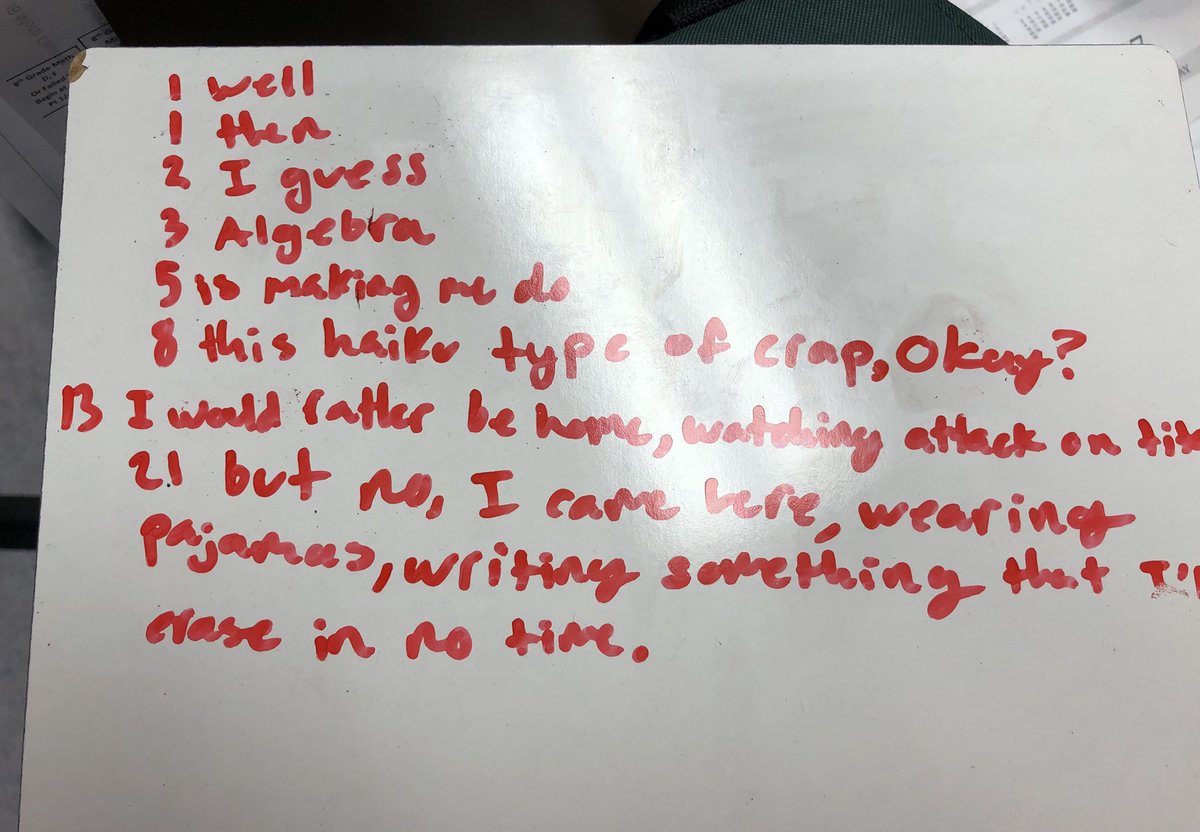 8th Grade Math
D, F
Or Failed
Begin at
1 well
1 then
2 I guess
3 Algebra
5 is making me do
8 this haiku type of crap, Okay?
13 I would rather be home, watching attack on tita
21 but no, I came here, wearing
pajamas, writing something that I'l
erase in no time.